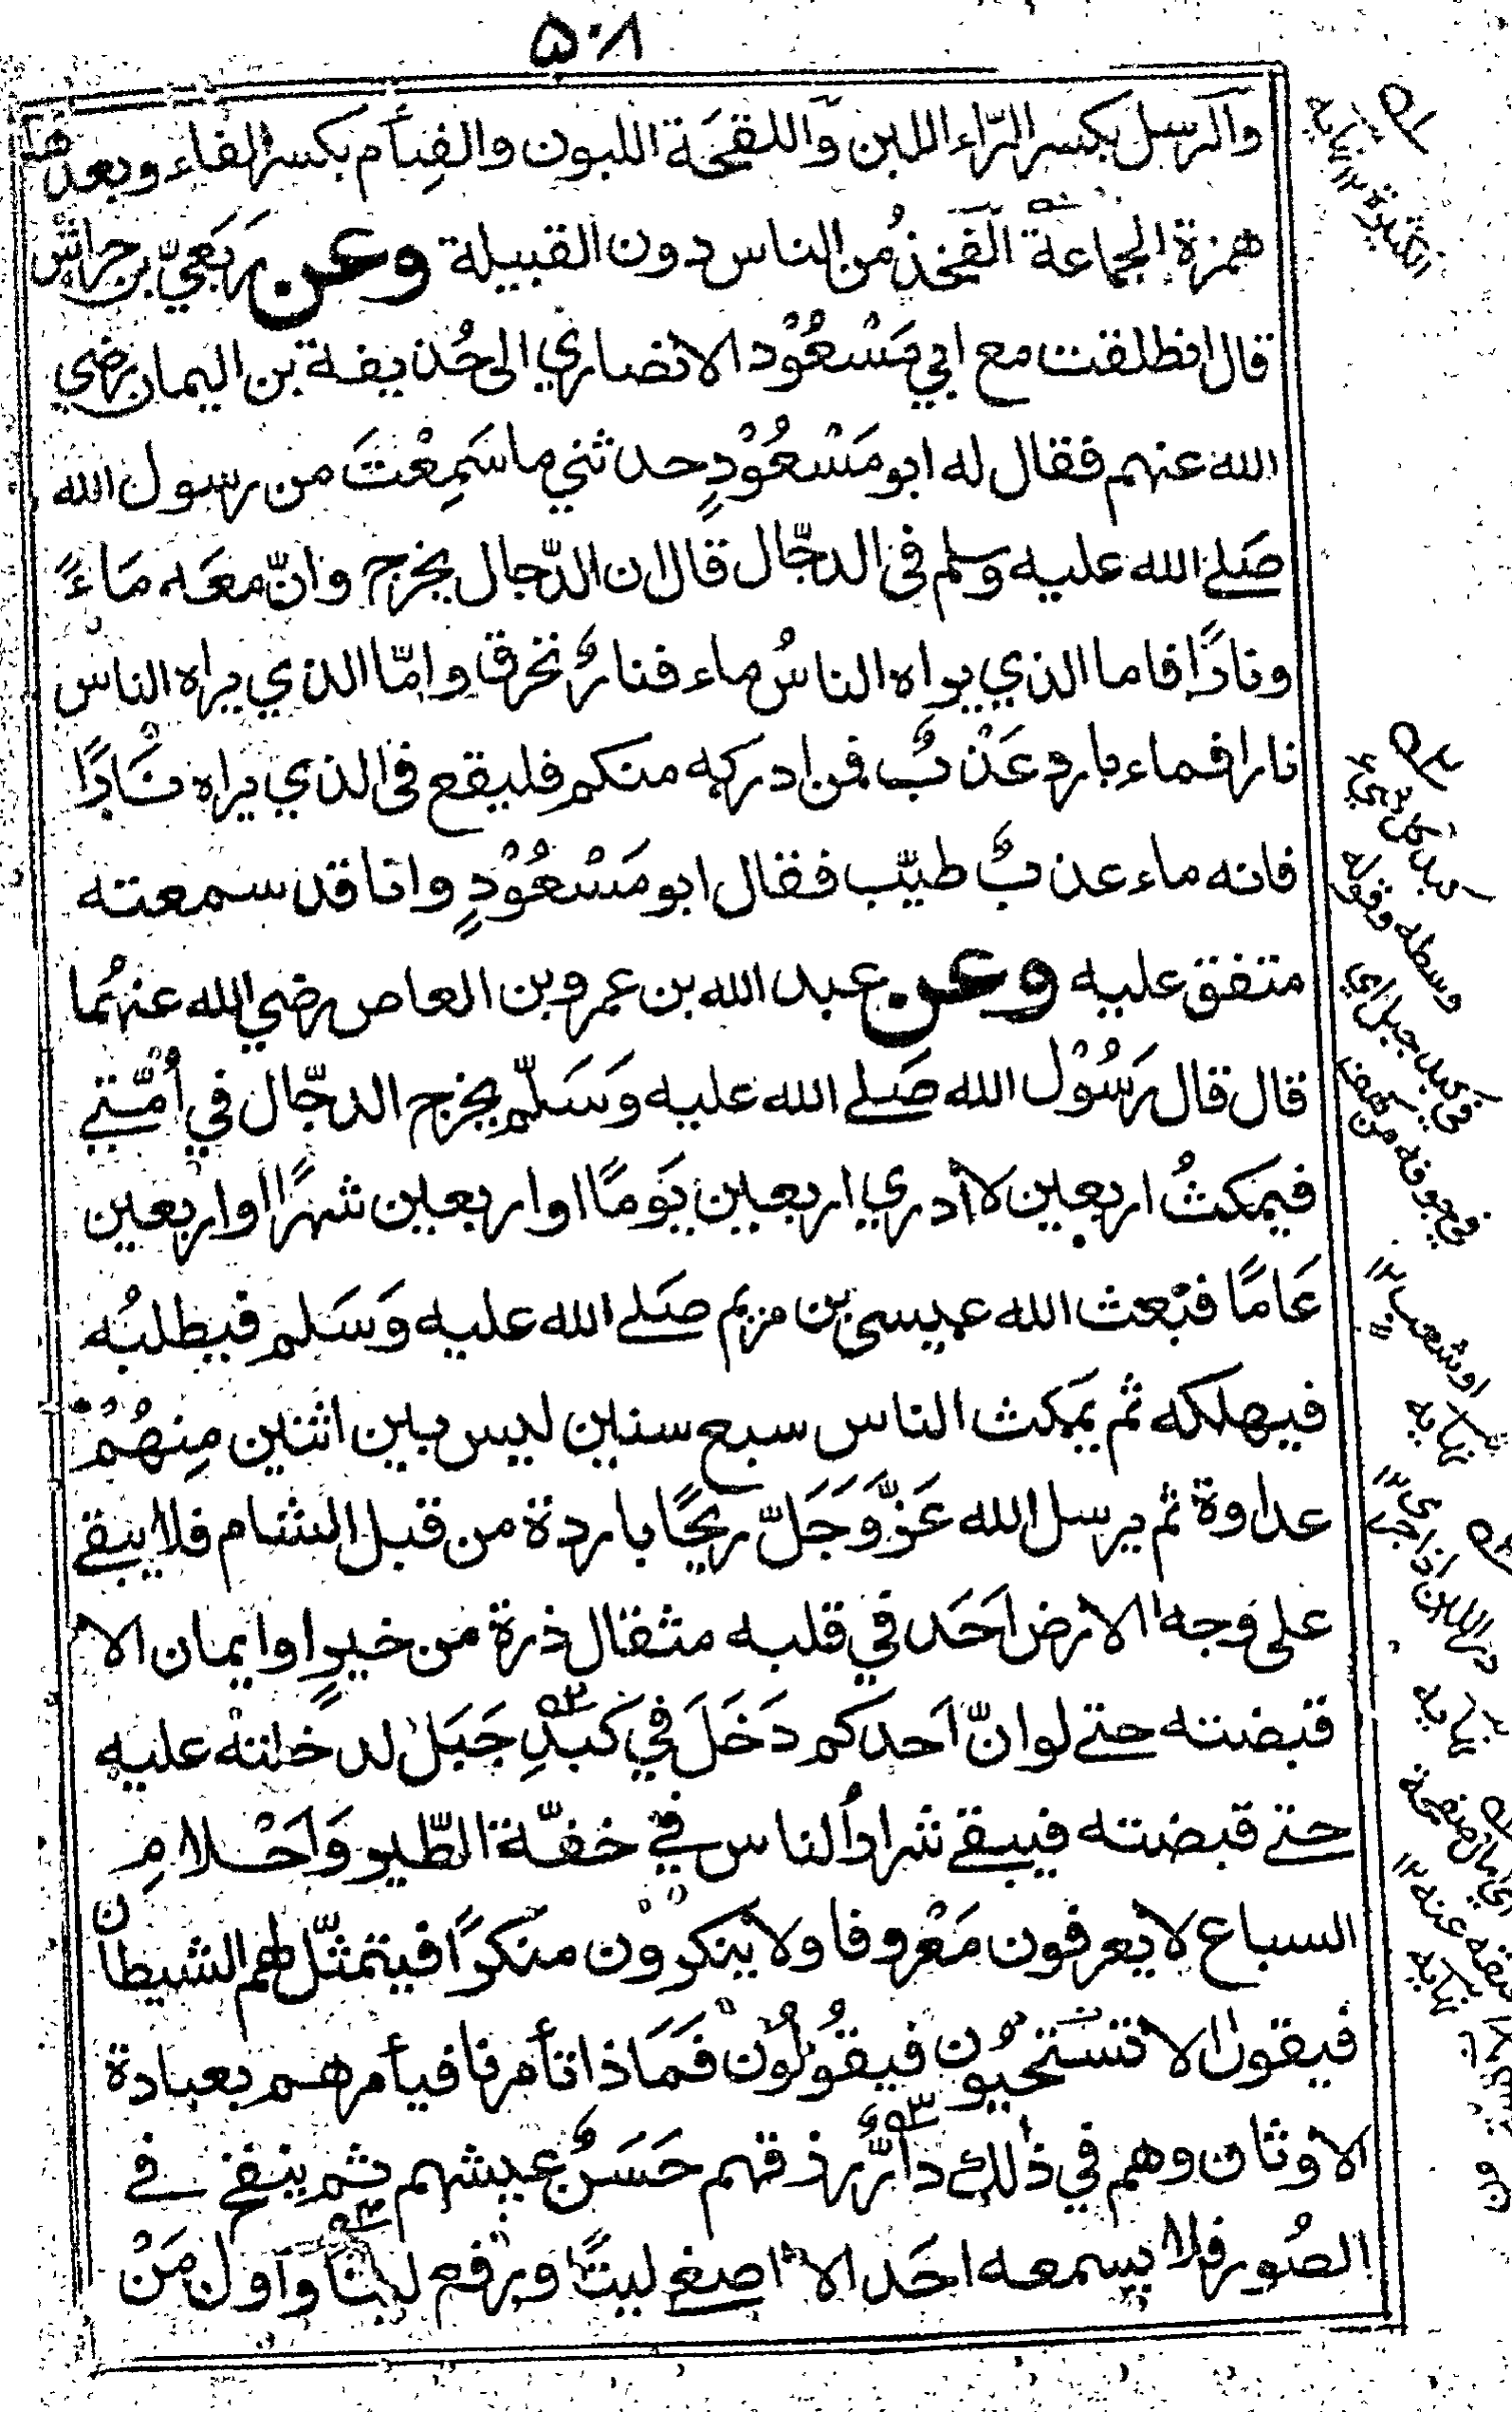 ۵۰۸
والرِسل بكسر الرّاء اللبن واللقحَة اللبون والفِئَام بكسر الفاء وبعدها
همزة الجماعة الفخذُ من الناس دون القبيلة وعن رَبَعيّ بن حراش
قال انطلقت مع ابي مَسْعُوْد الانصاري الى حُذيفة بن اليمان رضي
الله عنهم فقال له ابو مَسْعُوْدٍ حدثني ما سَمِعْتَ من رسول الله
صَلے الله عليه وسلم فى الدجّال قال ان الدّجال يخرج وانّ معَه مَاءً
ونارًا فاما الذي يراه الناسُ ماء فنارٌ تحرق وامّا الذي يراه الناس
نارا فماء بارد عَذْبٌ فمن ادركه منكم فليقع فى الذي يراه نَارًا
فانه ماء عذبٌ طيّب فقال ابو مَسْعُوْدٍ وانا قد سمعته
متفق عليه وعن عبد الله بن عمرو بن العاص رضي الله عنهُما
قال قال رَسُوْل الله صَلے الله عليه وَسَلّم يخرج الدجّال في اُمّتي
فيمكثُ اربعين لا ادري اربعين يَومًا او اربعين شهرًا او اربعين
عَامًا فيَبْعث الله عيسى بن مريم صَلے الله عليه وَسَلم فيطلبُه
فيهلكه ثم يَمكث الناس سبع سنين ليس بين اثنين مِنهُمْ
عداوة ثم يرسل الله عَزّ وَجَلّ ريحًا باردة من قبل الشام فلا يبقے
على وَجه الارض اَحَد في قلبه مثقال ذرة من خيرٍ او ايمان الا
قبضته حتے لو انّ اَحدكم دَخَلَ في كبَدِ جَبَل لدخلته عليه
حتے قبضته فيبقے شرارُ الناس فے خفّة الطّير وَاَحْلامِ
السباع لا يعرفون مَعْروفا ولا ينكرْون منكرًا فيتمثّل لهم الشيطان
فيقول الا تسْتَحْيُون فيقُوْلُوْن فَمَاذا تأمرنا فيأمرهم بعبادة
الاوثان وهم في ذٰلك دارٌّ رزقهم حَسَنٌ عيشهم ثم ينفخ فے
الصُور فلا يسمعه احَد الا اصغے ليتًا ورفع ليتًا واول مَنْ